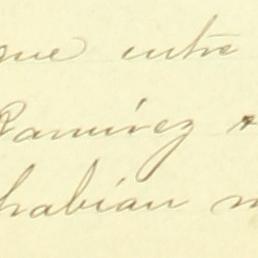 que entre
Ramírez
habian